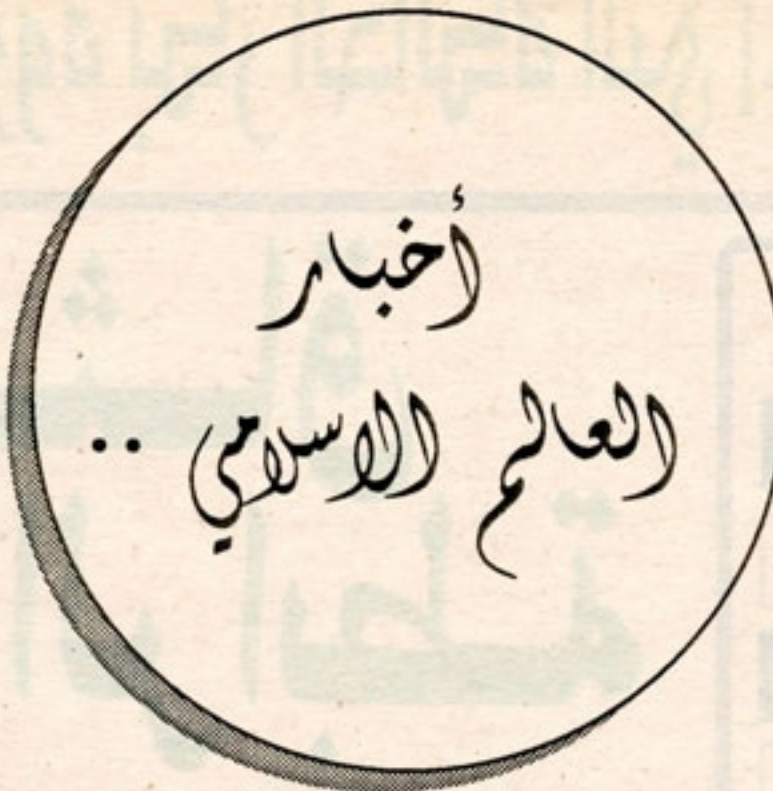 أخبار
العالم الاسلامي ..